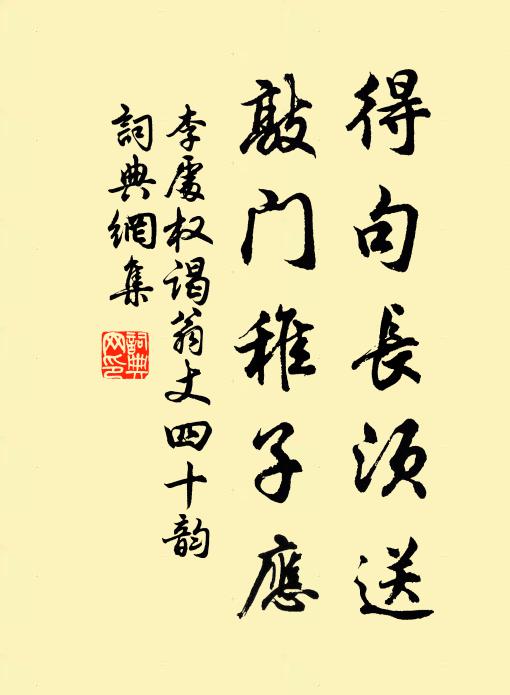 得句長須送
敲门稚子應
李處权谒翁丈四十韵
詞典網集
詞典网印